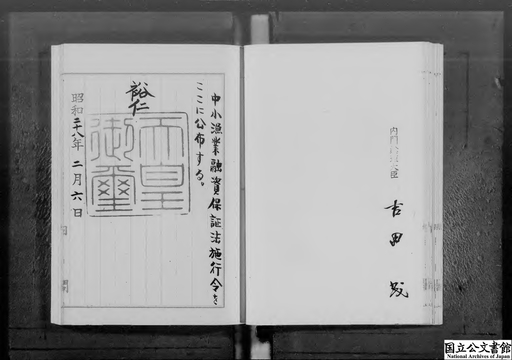 中小漁業融資保証法施行令を
ここに公布する。
裕仁
天皇
御璽
昭和二十八年二月六日
内閣総理大臣
吉田茂
国立公文書館
National Archives of Japan